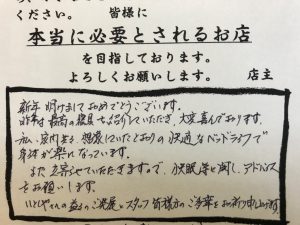 ください。 皆様に
本当に必要とされるお店
を目指しております。
よろしくお願いします。 店主
新年明けましておめでとうございます。
昨年は最高の寝具を紹介していただき、大変喜んでおります。
私、家内共々、想像していたとおりの快適なベッドライフで
身体が楽になっています。
また立寄らせていただきますので、快眠等に関し、アドバイス
をお願いします。
益々のご発展とスタッフ皆様方のご多幸をお祈り申し上げます。